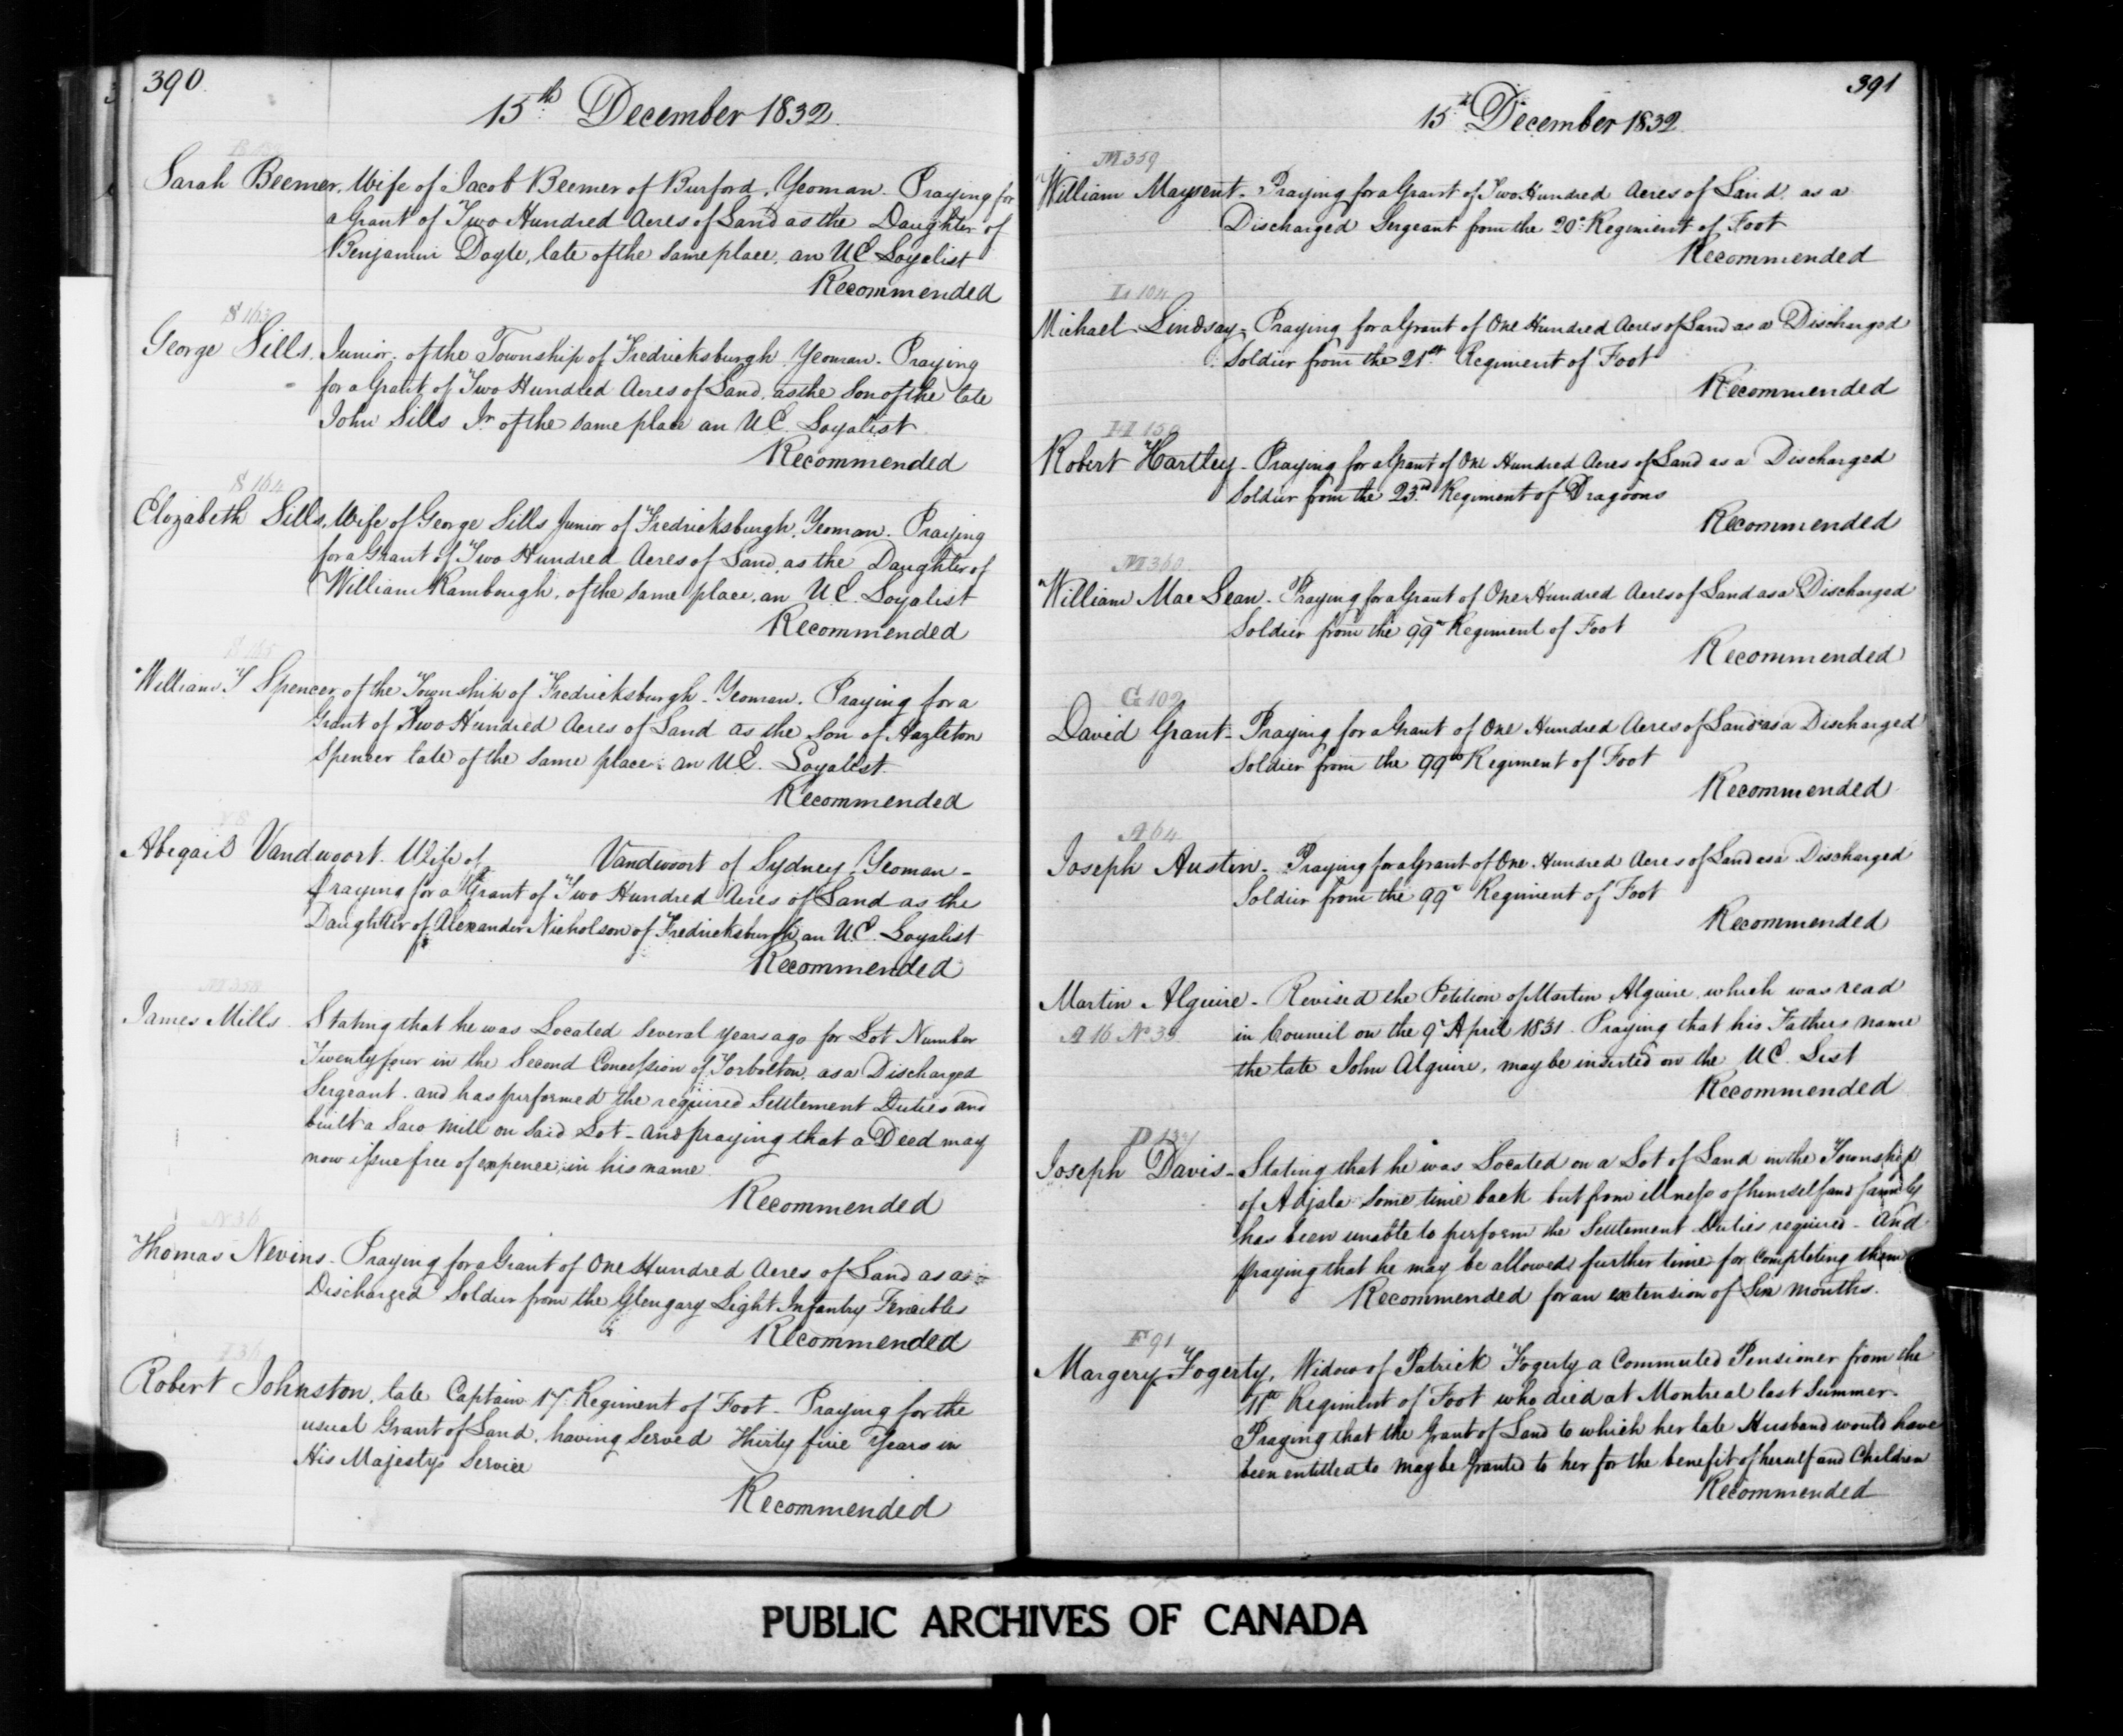 390
15th December 1832.
Sarah Beemer, Wife of Jacob Beemer of Burford, Yeoman. Praying for
a Grant of Two Hundred Acres of Land as the Daughter of
Benjamin Dogle, late of the same place, an UE Loyalist
Recommended
S 163
George Sills, Junior, of the Township of Fredricksburgh Yeoman. Praying
for a Grant of Two Hundred Acres of Land, as the Son of the late
John Sills Jr of the same place an UE. Loyalist
Recommended
S 164
Elizabeth Sills, Wife of George Sills Junior of Fredricksburgh, Yeoman. Praying
for a Grant of Two Hundred Acres of Land, as the Daughter of
William Rambough, of the same place, an UE. Loyalist
Recommended
S 165
William T Spencer, of the Township of Fredricksburgh - Yeoman. Praying for a
Grant of Two Hundred Acres of Land as the Son of Hazleton
Spencer late of the same place. an UE. Loyalist.
Recommended
V 8
Abigail Vandwoort. Wife of Vandwoort of Sydney, Yeoman -
Praying for a Grant of Two Hundred Acres of Land as the
Daughter of Alexander Nicholson of Fredricksburgh, an UE. Loyalist
Recommended
M 358
James Mills Stating that he was Located Several years ago for Lot Number
Twenty four in the Second Concession of Torbolton, as a Discharged
Sergeant. and has performed the required Settlement Duties and
built a Saw Mill on said Lot - and praying that a Deed may
now issue free of expence, in his name.
Recommended
N 36
Thomas Nevins - Praying for a Grant of One Hundred Acres of Land as a
Discharged Soldier from the Glengary Light Infantry Fencibles
Recommended
I 36
Robert Johnston, late Captain 17. Regiment of Foot - Praying for the
usual Grant of Land, having Served Thirty five Years in
His Majestys Service
Recommended
391
15th December 1832
M 359
William Maysent - Praying for a Grant of Two Hundred Acres of Land, as a
Discharged Sergeant from the 20th Regiment of Foot
Recommended
L 104
Michael Lindsay - Praying for a Grant of One Hundred Acres of Land as a Discharged
Soldier from the 21st Regiment of Foot
Recommended
H 150
Robert Hartley - Praying for a Grant of One Hundred Acres of Land as a Discharged
Soldier from the 23rd Regiment of Dragoons
Recommended
M 360
William Mac Lean - Praying for a Grant of One Hundred Acres of Land as a Discharged
Soldier from the 99th Regiment of Foot
Recommended
G 102
David Grant - Praying for a Grant of One Hundred Acres of Land as a Discharged
Soldier from the 99th Regiment of Foot
Recommended
A 64
Joseph Austin - Praying for a Grant of One Hundred Acres of Land as a Discharged
Soldier from the 99th Regiment of Foot
Recommended
Martin Alguire - Revised the Petition of Martin Alguire, which was read
A 16 No 39 in Council on the 9th April 1831. Praying that his Fathers name
the late John Alguire, may be inserted on the UE. List
Recommended
Joseph Davis - Stating that he was Located on a Lot of Land in the Township
of Adjala some time back but from illness of himself and family
has been unable to perform the Settlement Duties required - and
praying that he may be allowed further time for Completing them
Recommended for an extension of Six months.
F 91
Margery Fogerty, Widow of Patrick Fogerty a Commuted Pensioner from the
Regiment of Foot who died at Montreal last Summer.
Praying that the Grant of Land to which her late Husband would have
been entitled to may be granted to her for the benefit of herself and Children
Recommended
PUBLIC ARCHIVES OF CANADA